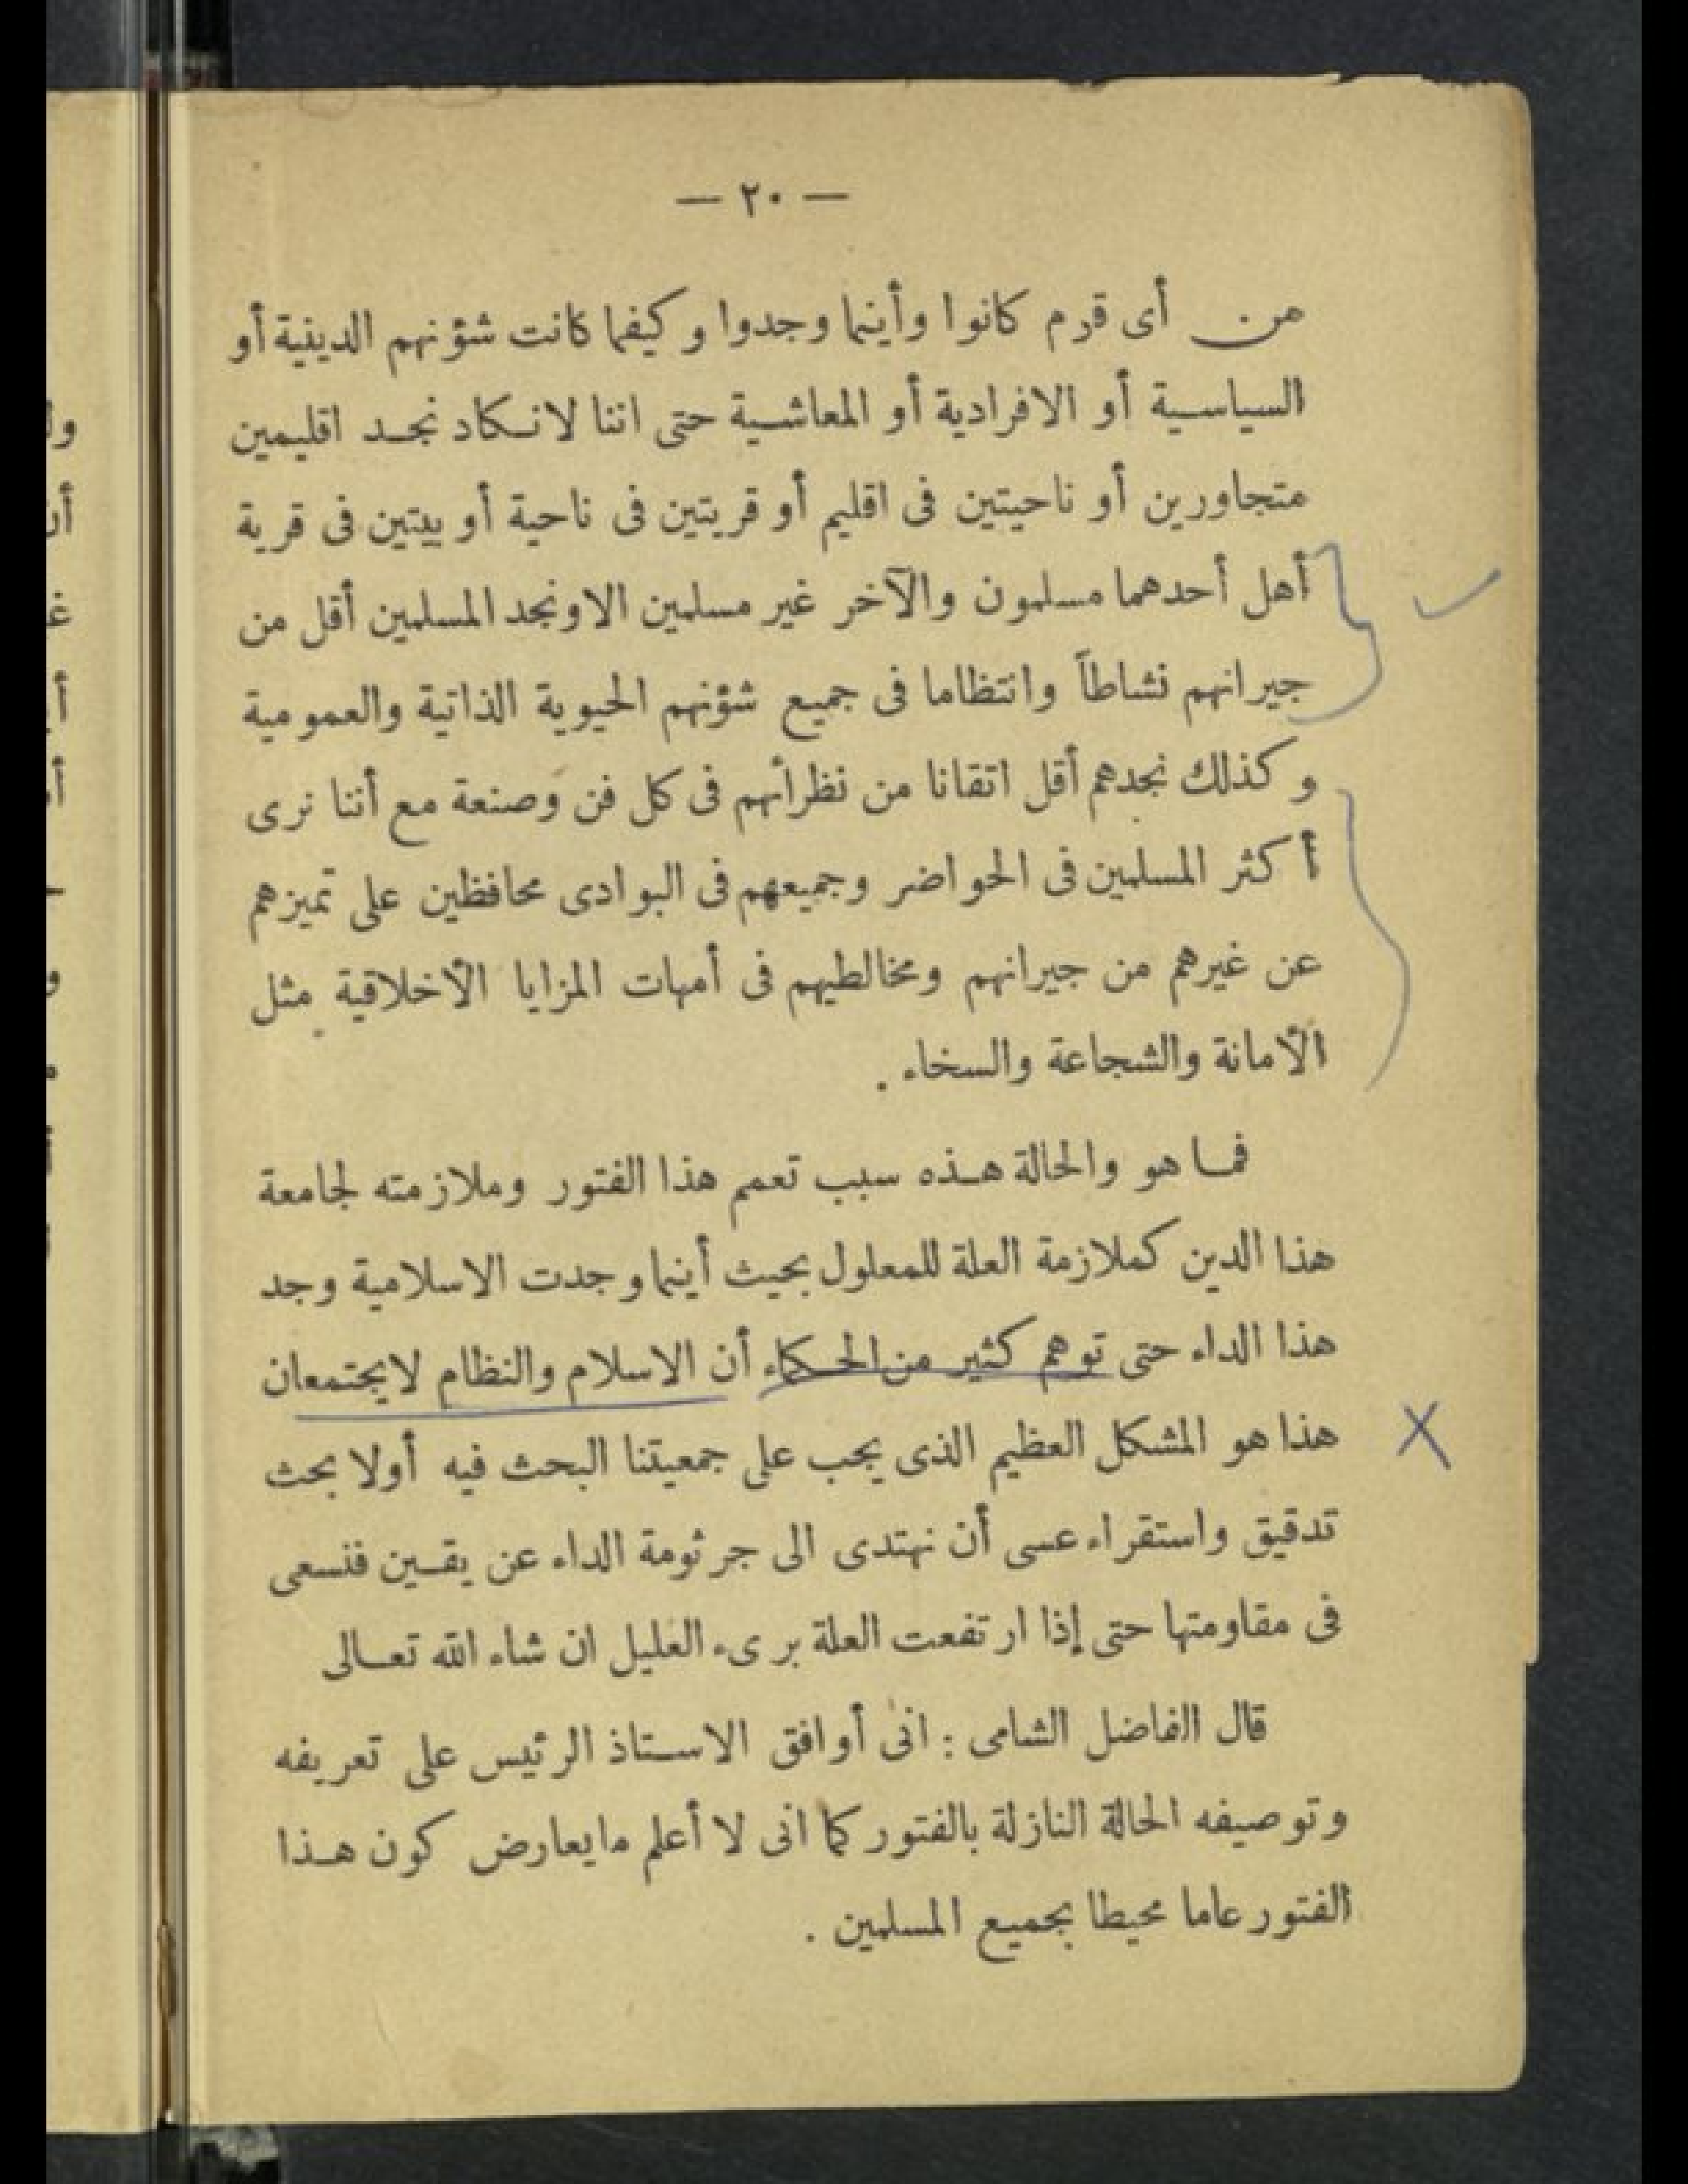 — ٢٠ —
من أى قوم كانوا وأينما وجدوا وكيفما كانت شؤنهم الدينية أو
السياسية أو الافرادية أو المعاشية حتى اننا لانكاد نجد اقليمين
متجاورين أو ناحيتين فى اقليم أو قريتين فى ناحية أو بيتين فى قرية
أهل أحدهما مسلمون والآخر غير مسلمين الاونجد المسلمين أقل من
جيرانهم نشاطاً وانتظاما فى جميع شؤنهم الحيوية الذاتية والعمومية
وكذلك نجدهم أقل اتقانا من نظرائهم فى كل فن وصنعة مع أننا نرى
أكثر المسلمين فى الحواضر وجميعهم فى البوادى محافظين على تميزهم
عن غيرهم من جيرانهم ومخالطيهم فى أمهات المزايا الأخلاقية مثل
الأمانة والشجاعة والسخاء .
فما هو والحالة هذه سبب تعمم هذا الفتور وملازمته لجامعة
هذا الدين كملازمة العلة للمعلول بحيث أينما وجدت الاسلامية وجد
هذا الداء حتى توهم كثير من الحكماء أن الاسلام والنظام لايجتمعان
هذا هو المشكل العظيم الذى يجب على جمعيتنا البحث فيه أولا بحث
تدقيق واستقراء عسى أن نهتدى الى جرثومة الداء عن يقين فنسعى
فى مقاومتها حتى إذا ارتفعت العلة برىء العليل ان شاء الله تعالى
قال الفاضل الشامى : انى أوافق الاستاذ الرئيس على تعريفه
وتوصيفه الحالة النازلة بالفتور كما انى لا أعلم مايعارض كون هذا
الفتور عاما محيطا بجميع المسلمين .